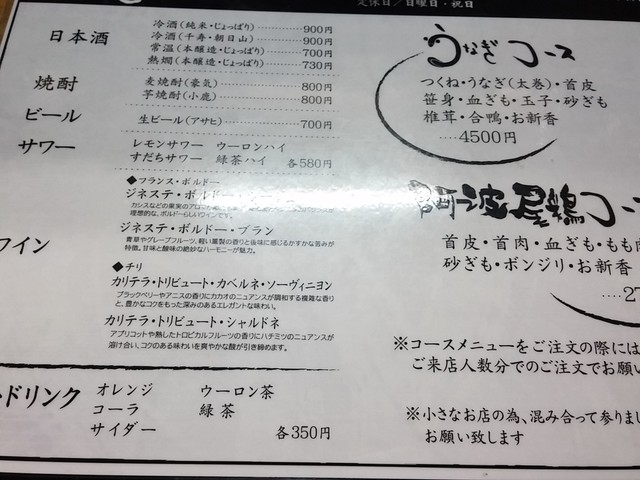 定休日/日曜日・祝日
日本酒
冷酒(純米・じょっぱり)…………900円
冷酒(千寿・朝日山)…………900円
常温(本醸造・じょっぱり)………700円
熱燗(本醸造・じょっぱり)………730円
焼酎
麦焼酎(豪気)…………800円
芋焼酎(小鹿)…………800円
ビール
生ビール(アサヒ)…………700円
サワー
レモンサワー ウーロンハイ
すだちサワー 緑茶ハイ 各580円
ワイン
◆フランス・ボルドー
ジネステ・ボルドー・
カシスなどの果実のアロ
理想的な、ボルドーらしいワインです。
ジネステ・ボルドー・ブラン
青草やグレープフルーツ、軽い薫製の香りと後味に感じるかすかな苦みが
特徴。甘味と酸味の絶妙なハーモニーが魅力。
◆チリ
カリテラ・トリビュート・カベルネ・ソーヴィニヨン
ブラックベリーやアニスの香りにカカオのニュアンスが調和する複雑な香り
と、豊かなコクをもった深みのあるエレガントな味わい。
カリテラ・トリビュート・シャルドネ
アプリコットや熟したトロピカルフルーツの香りにハチミツのニュアンスが
溶け合い、コクのある味わいを爽やかな酸が引き締めます。
ドリンク
オレンジ ウーロン茶
コーラ 緑茶
サイダー 各350円
うなぎコース
つくね・うなぎ(太巻)・首皮
笹身・血ぎも・玉子・砂ぎも
椎茸・合鴨・お新香
….4500円
阿波尾鶏コース
首皮・首肉・血ぎも・もも肉
砂ぎも・ボンジリ・お新香
….27
※コースメニューをご注文の際には
ご来店人数分でのご注文でお願い
※小さなお店の為、混み合って参りまし
お願い致します